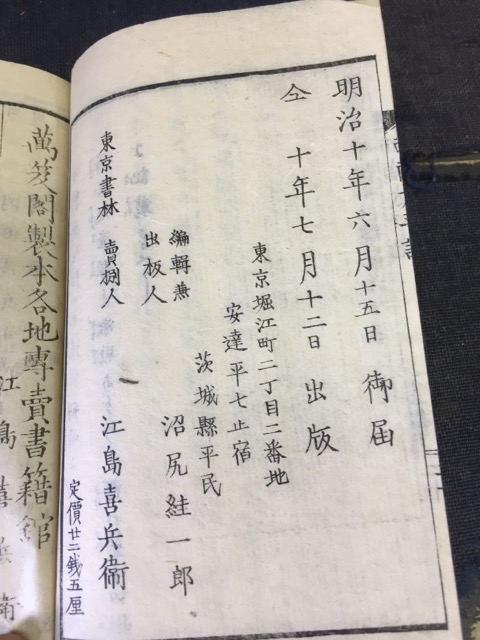 明治十年六月十五日御届
仝十年七月十二日出版
東京堀江町二丁目二番地
安達平七止宿
茨城縣平民
編輯兼
出板人
沼尻絓一郎
東京書林
賣捌人
江島喜兵衞
定價廿二錢五厘
萬笈閣製本各地專賣書籍舘
江島喜兵衞